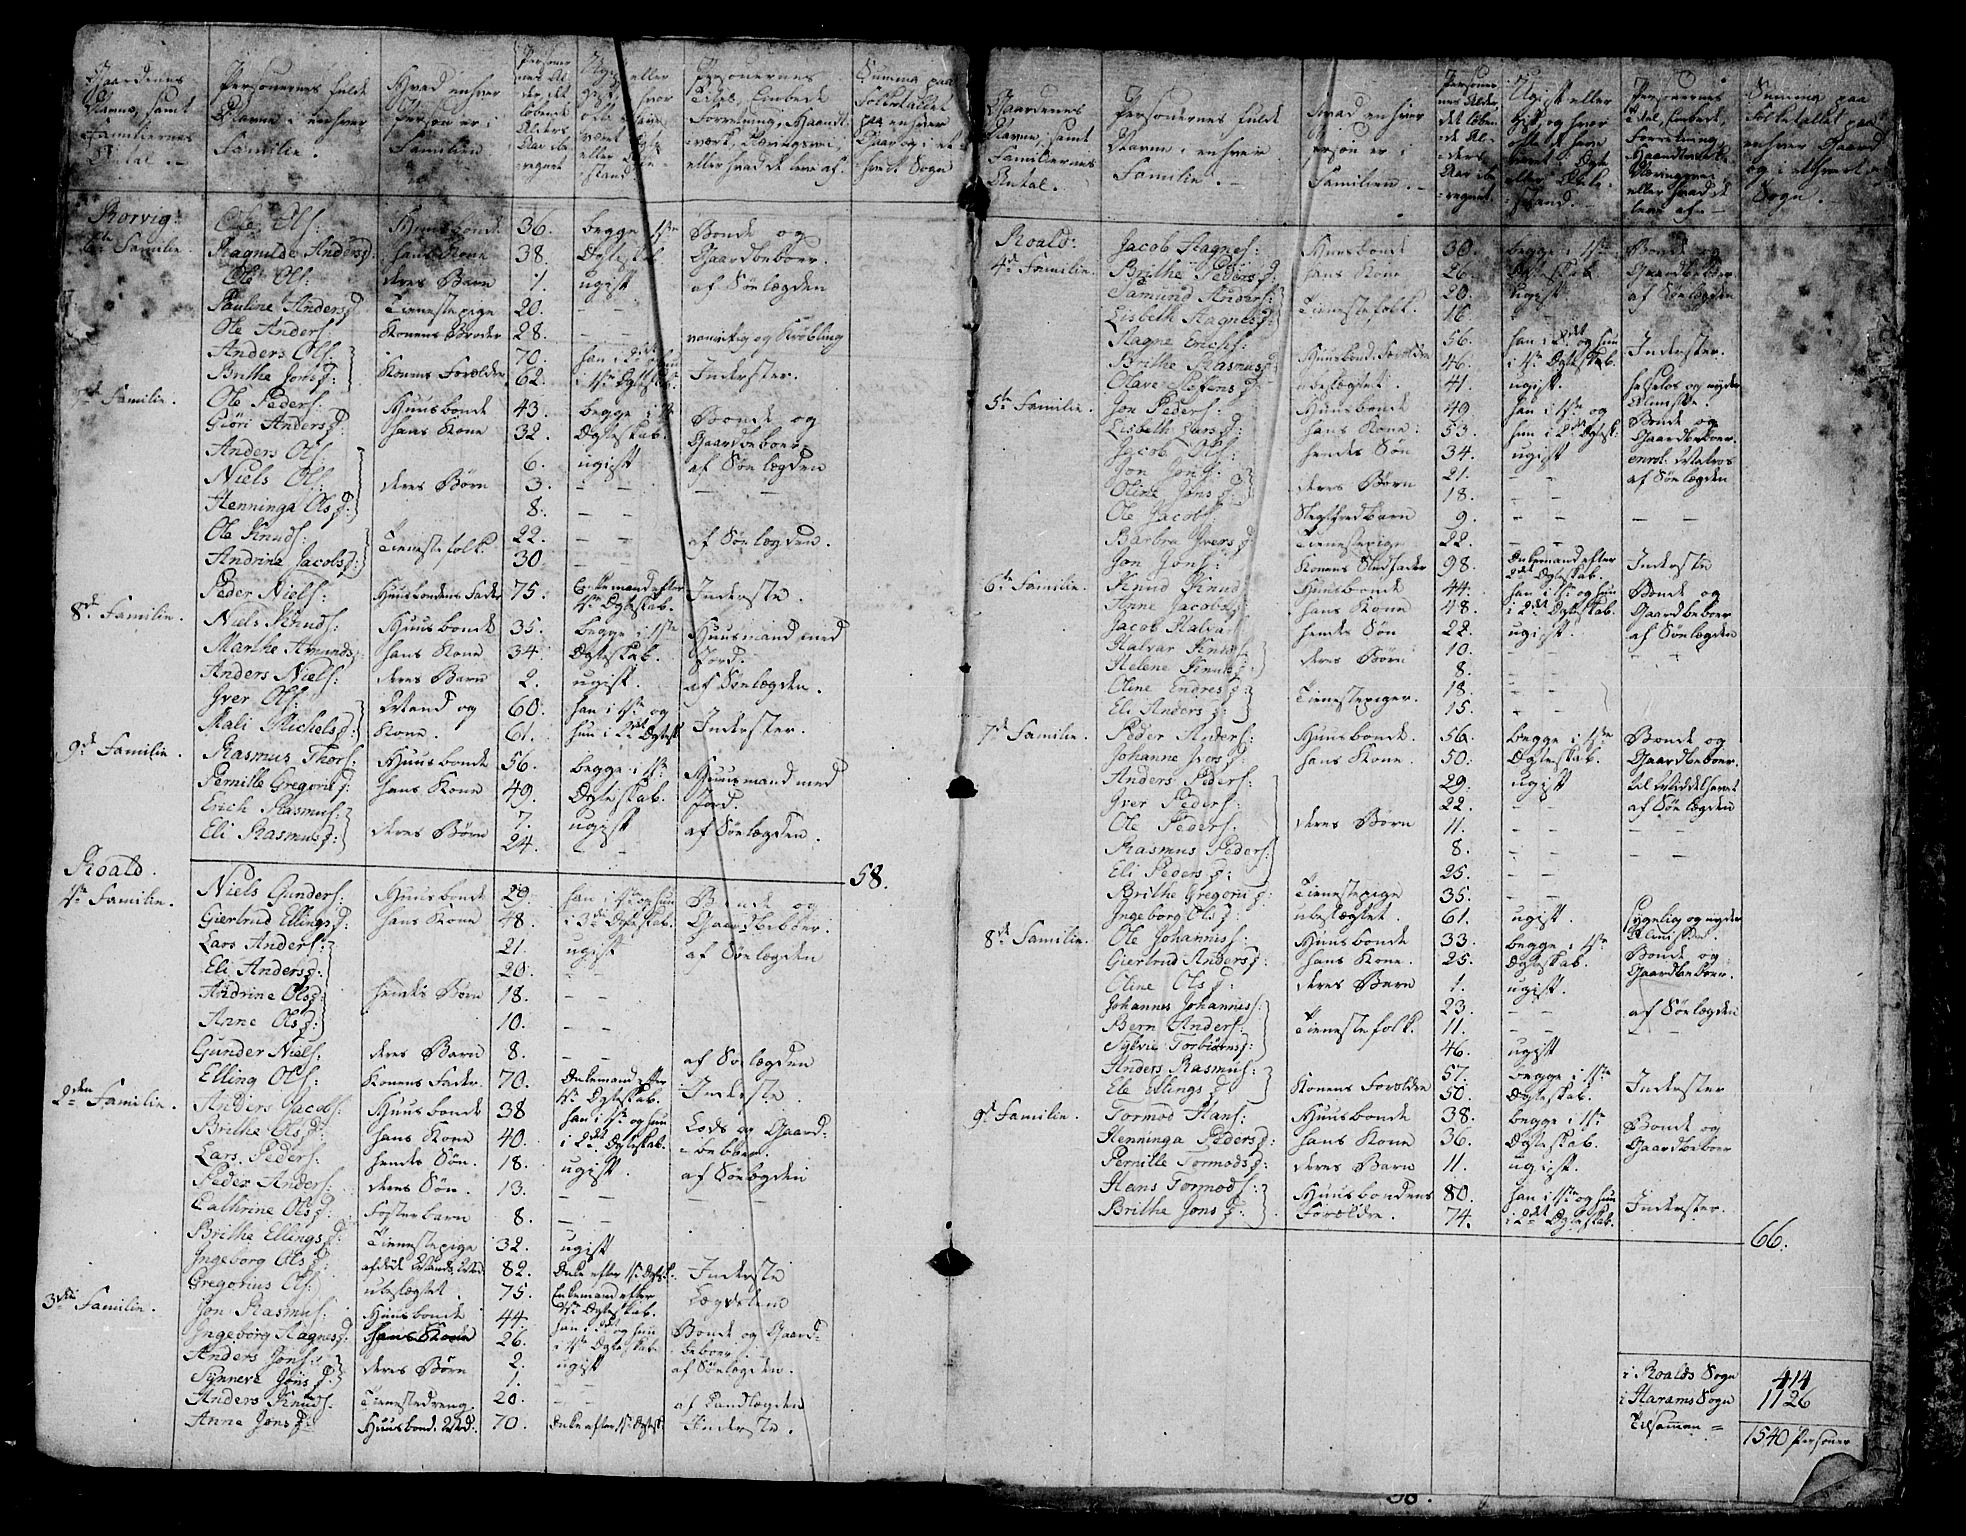 Gaardenes Navne, samt Familiernes Antal. | Personernes fulde Navne i enhver Familie. | Hvad enhver Person er i Familien | Personernes Alder, det løbende Alders Aar iberegnet | Ugift eller gift, og hvor ofte de have været i Ægte- eller Enkestand | Personernes Titel, Embede, Forretning, Haandverk, Næringsvei, eller hvad de leve af. | Summa paa Folketallet paa enhver Gaard og i et hvert Sogn
Rorvig. | Ole Ols: | Huusbonde | 36. | begge i 1ste | Bonde og
6te Familie. | Ragnilde Andersd: | hans Kone | 38. | Ægteskab | Gaardbeboer.
Ole Ols: | deres Barn | 1. | ugift | af Søelægden
Pauline Andersd: | Tienestepige | 20. | – –
Ole Anders: | Konens Broder | 28. | – – | vanvittig og Krøbling
Anders Ols: | | 70. | han i 2det hun
Brithe Jonsd: | Konens Forældre | 62. | i 1ste Ægteskab. | Inderster.
7de Familie. | Ole Peders: | Huusbonde | 43. | begge i 1ste | Bonde og
Giøri Andersd: | hans Kone | 32. | Ægteskab. | Gaardbeboer
Anders Ols: | | 6. | ugift | af Søelægden
Niels Ols: | deres Børn | 3. | – – | – –
Henninga Olsd: | | 8. | – –
Ole Knuds: | Tienestefolk. | 22. | – – | af Søelægden.
Andrina Jacobsd: | | 30 | – –
Peder Niels: | Huusbondens Fader | 75. | Enkemand efter 1ste Ægteskab. | Inderste.
8de Familie. | Niels Knuds: | Huusbonde | 35. | begge i 1ste | Huusmand med
Marthe Amundsd: | hans Kone | 34. | Ægteskab. | Jord.
Anders Niels: | deres Barn | 2. | ugift. | af Søelægden.
Iver Ols: | Mand og | 60. | han i 1ste og
Mali Michelsd: | Kone. | 61. | hun i 2det Ægtesk. | Inderster.
9de Familie. | Rasmus Thors: | Huusbonde | 56. | begge i 1ste | Huusmand med
Pernille Gregorid: | hans Kone | 49. | Ægteskab. | Jord.
Erich Rasmus: | | 7. | ugift | af Søelægden.
Eli Rasmusd: | deres Børn | 24. | – –
58.
Roald.
1ste Familie. | Niels Gunders: | Huusbonde | 29. | han i 1ste og hun | Bonde og
Giertrud Ellingsd: | hans Kone | 48. | i 3die Ægteskab. | Gaardbeboer.
Lars Anders: | | 21. | ugift | af Søelægden
Eli Andersd: | | 20. | – –
Andrine Olsd: | hendes Børn | 18. | – –
Anne Olsd: | | 10. | – –
Gunder Niels: | deres Barn | 8. | – – | af Søelægden
Elling Ols: | Konens Fader | 70. | Enkemand efter 1ste Ægteskab. | Inderste.
2den Familie. | Anders Jacobs: | Huusbonde | 38 | han i 1ste og hun | Lods og Gaard-
Brithe Olsd: | hans Kone | 40. | i 2det Ægteskab. | beboer.
Lars Peders: | hendes Søn. | 18. | ugift. | af Søelægden
Peder Anders: | deres Søn. | 13. | – –
Cathrine Olsd: | Fosterbarn | 8. | – –
Brithe Ellingsd: | Tienestepige | 32. | ugift
Ingeborg Olsd: | afdøde Mands Moder | 82. | Enke efter 1ste Ægtesk. | Inderste
Gregorius Ols: | ubeslægtet. | 75. | Enkemand efter 1ste Ægteskab. | Lægdslem
3die Familie. | Jon Rasmus: | Huusbonde | 44. | han i 2det og hun | Bonde og Gaard-
Ingeborg Hagnesd: | hans Kone | 26. | i 1ste Ægteskab | beboer
Anders Jons: | deres Børn | 2. | ugift | af Søelægden.
Synneve Jonsd: | | 1. | – –
Anders Knuds: | Tienestedreng. | 20. | – – | af Landlægden
Anne Jonsd: | Huusbond. Mod: | 70. | Enke efter 1ste Ægtesk | Inderste.
Gaardenes Navne, samt Familiernes Antal. | Personernes fulde Navne i enhver Familie. | Hvad enhver Person er i Familien. | Personernes Alder, det løbende Alders Aar iberegnet. | Ugift eller gift, og hvor ofte de have været i Ægte- eller Enkestand. | Personernes Titel, Embede, Forretning, Haandverk, Næringsvei, eller hvad de leve af. | Summa paa Folketallet paa enhver Gaard og i ethvert Sogn.
Roald: | Jacob Hagnes: | Huusbonde | 30. | begge i 1ste | Bonde og
4de Familie. | Brithe Pedersd: | hans Kone | 26. | Ægteskab. | Gaardbeboer.
Samund Anders: | Tienestefolk. | 20. | ugift. | af Søelægden
Lisbeth Hagnesd: | | 16. | –
Hagne Erichs: | Huusbond. Forældre | 56. | han i 2det og hun | Inderster.
Brithe Rasmusd: | | 46. | i 1ste Ægteskab.
Olave Stefensd: | ubeslægtet. | 41. | ugift. | og nyder Almisse.
5te Familie. | Jon Peders: | Huusbonde | 49. | han i 1ste og | Bonde og
Lisbeth Larsd: | hans Kone: | 53. | hun i 2det Ægtesk: | Gaardbeboer.
Jacob Ols: | hendes Søn | 34. | ugift | enrol: Matros
Jon Jons: | deres Børn | 21. | – – | af Søelægden
Oline Jonsd: | | 18. | – –
Ole Jacobs: | Slegfredbarn | 9. | – – | – –
Barbra Iversd: | Tienestepige | 22. | – –
Jon Jons: | Konens Stedfader | 98. | Enkemand efter 2det Ægteskab. | Inderste
6te Familie. | Knud Knuds: | Huusbonde | 44. | han i 1ste og hun | Bonde og
Anne Jacobsd: | hans Kone | 48. | i 2det Ægteskab. | Gaardbeboer
Jacob Halva: | hendes Søn | 22. | ugift. | af Søelægden
Halvar Knuds: | deres Børn | 10. | – – | – –
Helene Knudsd: | | 8. | – –
Oline Endresd: | Tienestepiger. | 18. | – –
Eli Andersd: | | 15. | – –
7de Familie. | Peder Anders: | Huusbonde. | 56. | begge i 1ste | Bonde og
Johanne Iversd: | hans Kone. | 50. | Ægteskab. | Gaardbeboer.
Anders Peders: | | 29. | ugift | til Middelhavet
Iver Peders: | | 22. | – – | af Søelægden
Ole Peders: | deres Børn | 11. | – – | – –
Rasmus Peders: | | 8. | – – | – –
Eli Pedersd: | | 25. | – –
Brithe Gregorid: | Tienestepige | 35. | – –
Ingeborg Olsd: | ubeslægtet. | 61. | ugift. | sygelig og nyder Almisse.
8de Familie. | Ole Johannis: | Huusbonde | 33. | begge i 1ste | Bonde og
Giertrud Andersd: | hans Kone. | 25. | Ægteskab. | Gaardbeboer.
Oline Olsd: | deres Barn | 1. | ugift.
Johannes Johannis: | | 23. | – – | af Søelægden
Bern Anders: | Tienestefolk. | 11. | – –
Sylvie Torbiørnsd: | | 46. | ugift
Anders Rasmus: | Konens Forældre | 57. | begge i 1ste | Inderster
Ele Ellingsd: | | 50. | Ægteskab.
9de Familie. | Tormod Hans: | Huusbonde | 38. | begge i 1ste | Bonde og
Henninga Pedersd: | hans Kone | 36. | Ægteskab. | Gaardbeboer
Pernille Tormodsd: | deres Barn | 11. | ugift.
Hans Tormods: | Huusbondens | 80. | han i 1ste og hun | Inderster.
Brithe Jonsd: | Forældre. | 74. | i 2det Ægteskab.
66.
i Roalds Sogn 414
i Harams Sogn 1126
Tilsammen = 1540 Personer